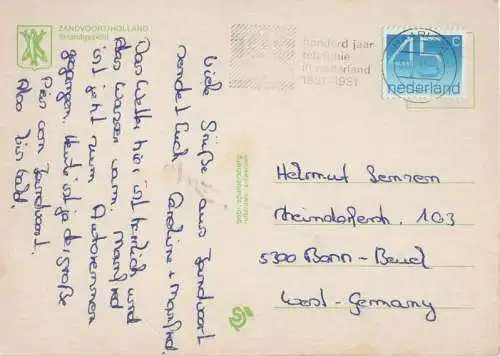 ZANDVOORT/HOLLAND
Strandgezicht
Viele Grüße aus Zandvoort
sendet Euch Caroline + Manfred.
Das Wetter hier ist herrlich und
das Wasser warm. Manfred
ist jetzt zum Autorennen
gegangen. Heute ist ja der große
Preis von Zandvoort.
Also bis bald.
honderd jaar
telefonie
in nederland
1881-1981
45 c
nederland
Helmut
103
5300 Bonn-Beuel
West-Germany